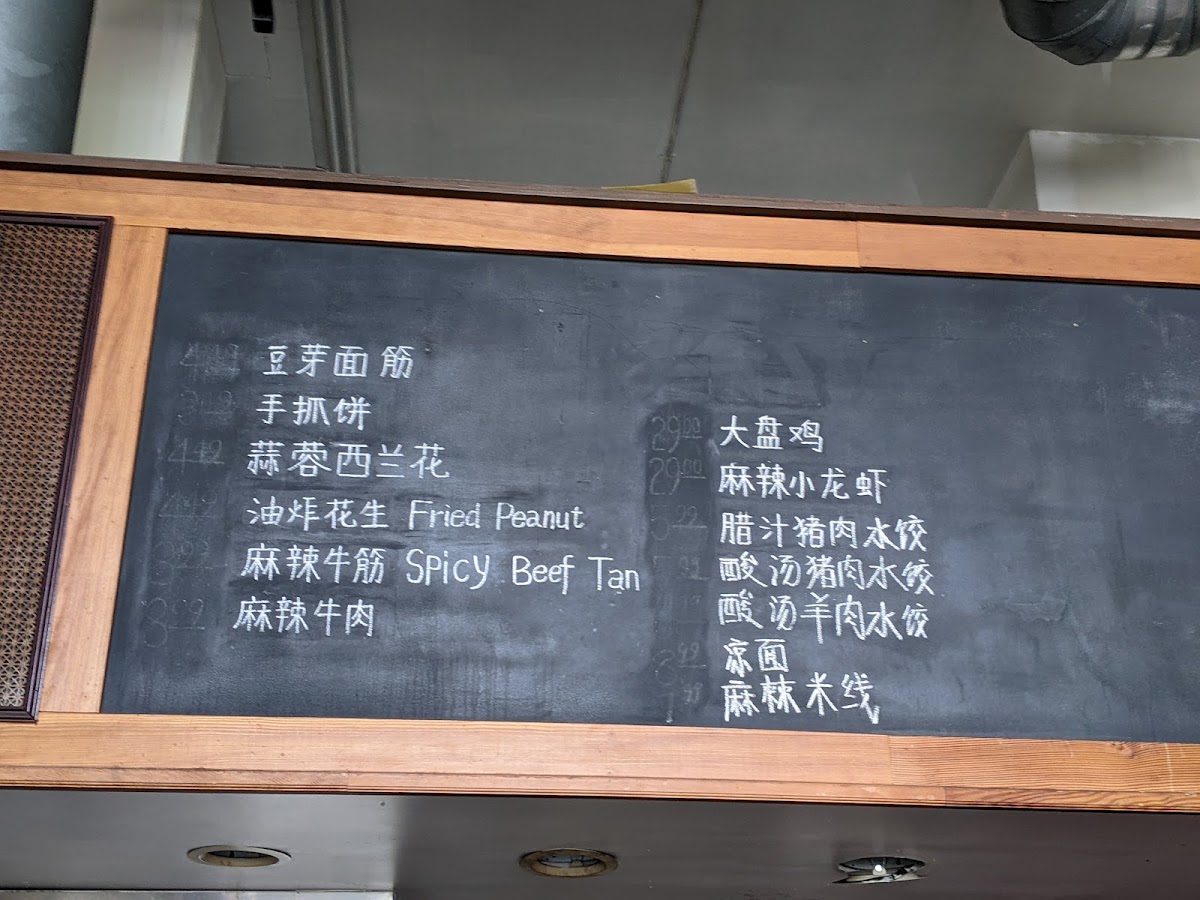 豆芽面筋
手抓饼
蒜蓉西兰花
油炸花生 Fried Peanut
麻辣牛筋 Spicy Beef Tan
麻辣牛肉
29.00 大盘鸡
29.00 麻辣小龙虾
腊汁猪肉水饺
酸汤猪肉水饺
酸汤羊肉水饺
凉面
麻辣米线